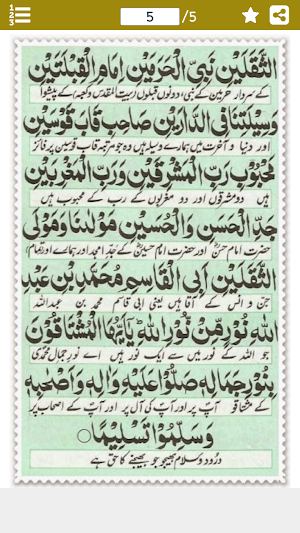 1
2
3
5
/5
الثَّقَلَيْنِ نَبِيِّ الْحَرَمَيْنِ اِمَامِ الْقِبْلَتَيْنِ
کے سردار حرمین کے نبی، دونوں قبلوں (بیت المقدس و کعبہ) کے پیشوا
وَسِيْلَتِنَا فِي الدَّارَيْنِ صَاحِبِ قَابَ قَوْسَيْنِ
اور دنیا و آخرت میں ہمارے وسیلہ ہیں وہ جو مرتبہ قاب قوسین پر فائز
مَحْبُوْبِ رَبِّ الْمَشْرِقَيْنِ وَرَبِّ الْمَغْرِبَيْنِ
ہیں دو مشرقوں اور دو مغربوں کے رب کے محبوب ہیں
جَدِّ الْحَسَنِ وَالْحُسَيْنِ مَوْلٰنَا وَمَوْلَى
حضرت امام حسن اور حضرت امام حسین کے جد امجد اور ہمارے اور (تمام)
الثَّقَلَيْنِ اَبِي الْقَاسِمِ مُحَمَّدِ بْنِ عَبْدِ
جن و انس کے آقا ہیں یعنی ابی قاسم محمد بن عبداللہ
اللهِ نُوْرٍ مِّنْ نُّوْرِ اللهِ يٰٓاَيُّهَا الْمُشْتَاقُوْنَ
جو اللہ کے نور میں سے ایک نور ہیں اے نور جمال محمدی
بِنُوْرِ جَمَالِهٖ صَلُّوْا عَلَيْهِ وَاٰلِهٖ وَاَصْحَابِهٖ
کے مشتاقو آپ پر اور آپ کی آل پر اور آپ کے اصحاب پر
وَسَلِّمُوْا تَسْلِيْمًا
درود و سلام بھیجو جو بھیجنے کا حق ہے